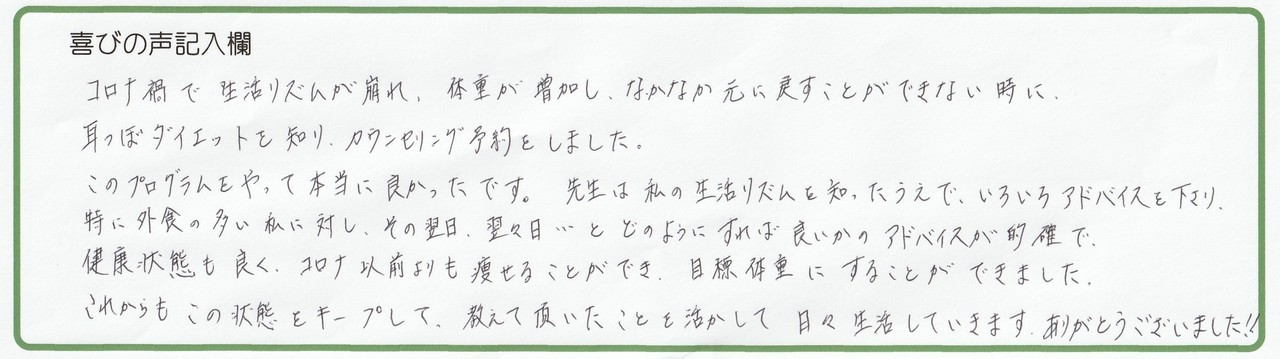 喜びの声記入欄
コロナ禍で生活リズムが崩れ、体重が増加し、なかなか元に戻すことができない時に、
耳つぼダイエットを知り、カウンセリング予約をしました。
このプログラムをやって本当に良かったです。先生は私の生活リズムを知ったうえで、いろいろアドバイスを下さり、
特に外食の多い私に対し、その翌日、翌々日…とどのようにすれば良いかのアドバイスが的確で、
健康状態も良く、コロナ以前よりも痩せることができ、目標体重にすることができました。
これからもこの状態をキープして、教えて頂いたことを活かして日々生活していきます。ありがとうございました!!